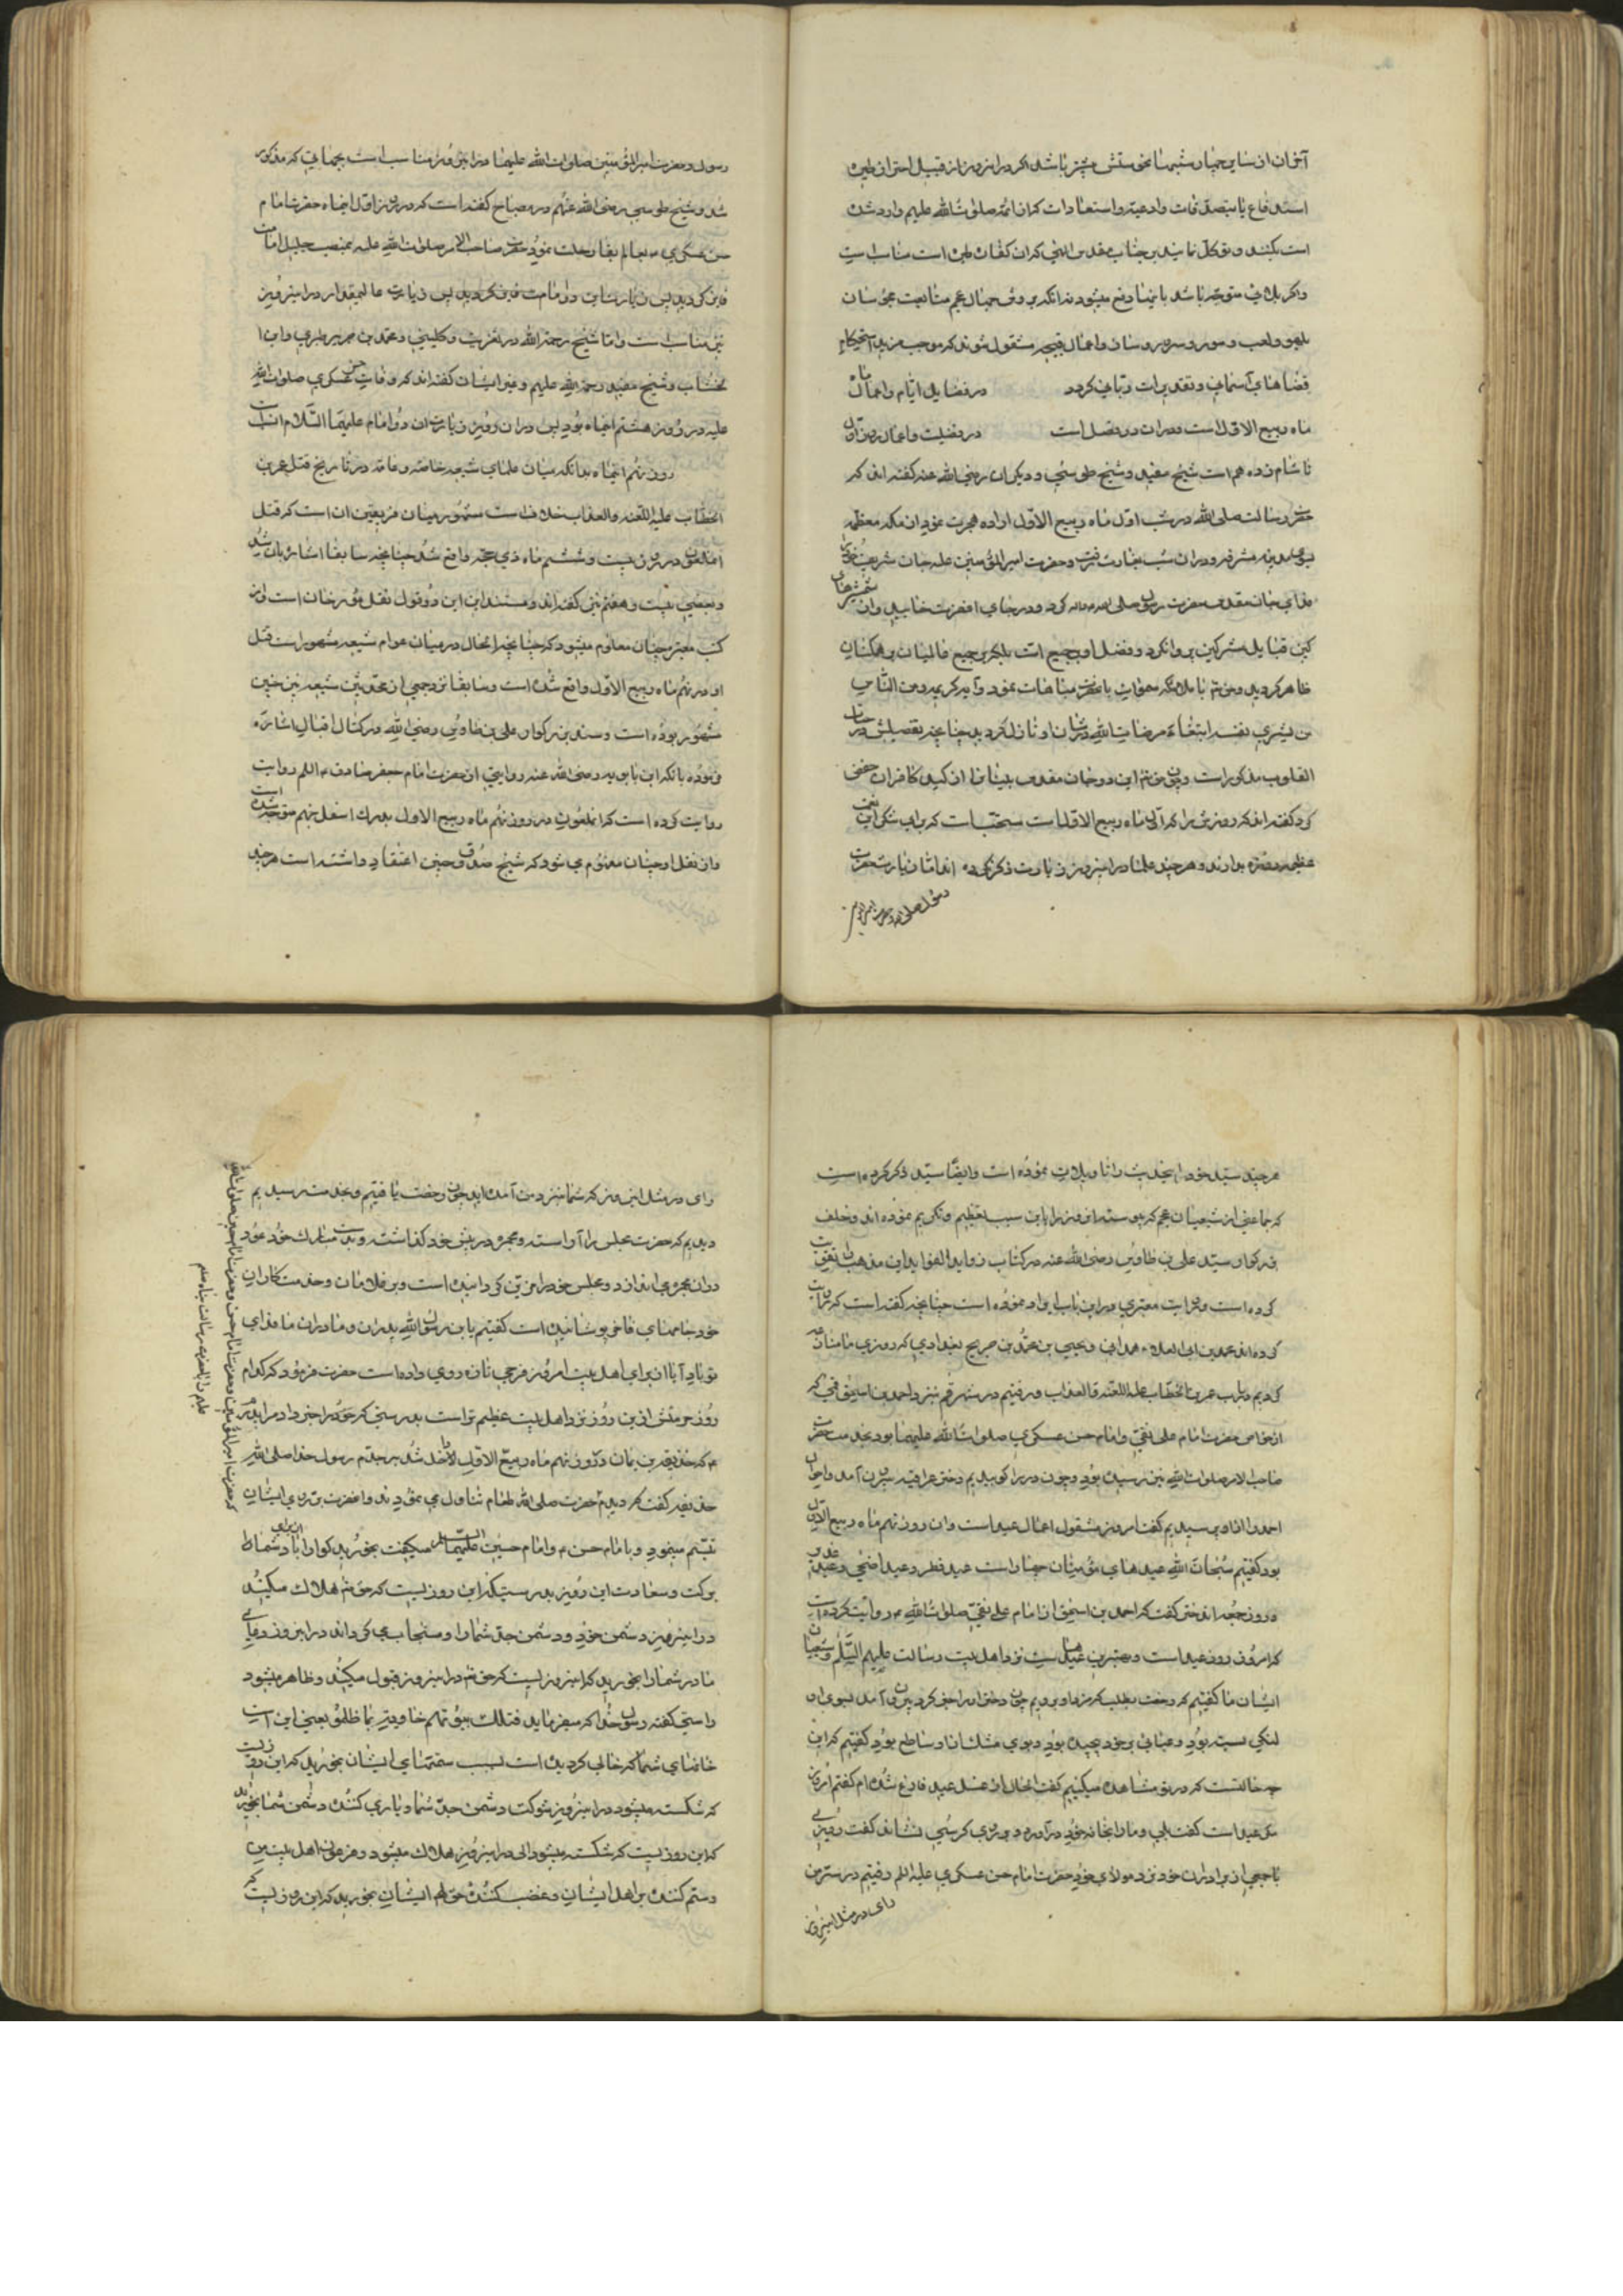 آخران از سایر چهارشنبها نحوستش بیشتر باشد اگر در این روز از قبیل احتراز طیره
استدفاع یا بتصدقات وادعیه واستعاذات که از ائمه صلوات الله علیهم وارد شده
است بکنند و توکل نمایند بر جناب مقدس الهی که ان کفاره طیره است مناسب است
واگر بلائی متوجه باشد باینها دفع میشود نه انکه بروش جهال عجم متابعت مجوسان
بلهو ولعب وسور وسرور وساز واعمال قبیحه مشغول شوند که موجب مزید استحکام
قضاهای آسمانی وتقدیرات ربانی کردد در فضایل ایام واعمال ماه
ماه ربیع الاول است ودران دو فصل است در فضیلت واعمال روز اول
تا شام نوزدهم است شیخ مفید وشیخ طوسی ودیکران رضی الله عنه کفته اند که
حضرت رسالت صلی الله در شب اول ماه ربیع الاول اراده هجرت نمود از مکه معظمه
بسوی مدینه مشرفه ودران شب بغار ثور رفت وحضرت امیر المؤمنین علیه جان شریف خود را
فدای جان مقدس حضرت رسول صلی الله علیه واله کرده ودر جای انحضرت خوابید وان شمشیرهای
کین قبایل مشرکین پروا نکرد وفضل او بر جمیع امت بلکه بر جمیع عالمیان بر همکنان
ظاهر کردید وحق تم با ملائکه سموات بانحضرت مباهات نمود وآیه کریمه ومن الناس
من یشری نفسه ابتغاء مرضات الله در شان او نازل کردید چنانچه تفصیلش در حیات
القلوب مذکور است وچون حق تم این دو جان مقدس بیمانند را از کید کافران حفظ
کرد کفته اند که روزه این روز که اول ماه ربیع الاول است مستحب است که برای شکر این نعمت
عظیمه روزه بدارند وهر چند علما در این روز زیارت ذکر نکرده اند اما زیارت حضرت
رسول صلی الله وحضرت امیر المؤمنین
رسول وحضرت امیر المؤمنین صلوات الله علیهما در این روز مناسب است بجهاتی که مذکور
شد وشیخ طوسی رضی الله عنهم در مصباح کفته است که در روز اول اینماه حضرت امام
حسن عسکری ع بعالم بقا رحلت نمود وحضرت صاحب الامر صلوات الله علیه بمنصب جلیل امامت
فایز کردید پس زیارت این دو امام
نیز مناسب است واما شیخ رحمه الله در تهذیب وکلینی ومحمد بن جریر طبری وابن
خشاب وشیخ مفید رحمة الله علیهم وغیر ایشان کفته اند که وفات حسن عسکری صلوات الله
علیه در روز هشتم اینماه بود پس دران روز نیز زیارت ان دو امام علیهما السلام انسب است
روز نهم اینماه بدانکه میان علمای شیعه خاصه وعامه در تاریخ قتل عمر بن
الخطاب علیه اللعنه والعذاب خلاف است مشهور میان فریقین ان است که قتل
انملعون در روز بیست وششم ماه ذی حجه واقع شد چنانچه سابقا اشاره بان شد
وبعضی بیست وهفتم نیز کفته اند ومستند این دو قول نقل مؤرخان است واز
کتب معتبره چنان معلوم میشود که چنانچه الحال در میان عوام شیعه مشهور است قتل
او در نهم ماه ربیع الاول واقع شده است وسابقا نزد جمعی از محدثین شیعه نیز چنین
مشهور بوده است وسید بزرکوار علی بن طاوس رضی الله در کتاب اقبال اشاره
نموده بانکه ابن بابویه رضی الله عنه روایتی از حضرت امام جعفر صادق علیه السلم روایت
روایت کرده است که انملعون در روز نهم ماه ربیع الاول بدرک اسفل جهنم متوجه شده است
واز نقل او چنان معلوم می شود که شیخ صدوق چنین اعتقاد داشته است هر چند
هر چند سید خود این حدیث را تاویلات نموده است وایضا سید ذکر کرده است
که جماعتی از شیعیان عجم که پیوسته این روز را باین سبب تعظیم وتکریم نموده اند وخلف
بزرکوار سید علی بن طاوس رضی الله عنه در کتاب زواید الفواید این مذهب را تقویت
کرده است وروایت معتبری در این باب ایراد نموده است چنانچه کفته است که روایت
کرده اند محمد بن ابی العلاء همدانی ویحیی بن محمد بن جریح بغدادی که روزی ما منازعه
کردیم در باب عمر بن الخطاب علیه اللعنه والعذاب ورفتیم در شهر قم بنزد احمد بن اسحق قمی که
از خواص حضرت امام علی نقی وامام حسن عسکری صلوات الله علیهما بود وبخدمت حضرت
صاحب الامر صلوات الله نیز رسیده بود وچون در را کوبیدیم دختر عراقیه بیرون آمد واحوال
احمد را از او پرسیدیم کفت امروز مشغول اعمال عید است وان روز نهم ماه ربیع الاول
بود کفتیم سبحان الله عیدهای مؤمنان چهار است عید فطر وعید اضحی وعید غدیر
وروز جمعه اندختر کفت که احمد بن اسحق از امام علی نقی صلوات الله ع روایت کرده است
که امروز روز عید است وبهترین عیدهاست نزد اهل بیت رسالت علیهم السلم وشیعیان
ایشان ما کفتیم که رخصت بطلب که بنزد او بروم چون دختر او را خبر کرد بیرون آمد بسوی ما
لنکی بسته بود وعبائی بر خود پیچیده بود وبوی مشک از او ساطع بود کفتیم که این
چه حالتست که در تو مشاهده میکنیم کفت الحال از غسل عید فارغ شده ام کفتیم امروز
مکر عید است کفت بلی وما را بخانه خود در آورد وبر روی کرسی نشاند کفت روزی
با جمعی از برادران خود نزد مولای خود حضرت امام حسن عسکری علیه السلم رفتیم در سر من
رای در مثل این روز
رای در مثل این روز که شما بنزد من آمده اید چون رخصت یافتیم وبخدمت رسیدیم
دیدیم که حضرت مجلس را آراسته ومجمره در پیش خود کذاشته وبدست مبارک خود عود
دران مجمره می اندازد ومجلس خود را مزین کردانیده است وبر غلامان وخدمتکاران
خود جامهای فاخر پوشانیده است کفتیم یا بن رسول الله پدران ومادران ما فدای
تو باد آیا از برای اهل بیت امروز فرحی تازه روی داده است حضرت فرمود که کدام
روز حرمتش از این روز نزد اهل بیت عظیم تر است بدرستی که خبر داد مرا پدرم
ع که حذیفه بن یمان در روز نهم ماه ربیع الاول داخل شد بر جدم رسول خدا صلی الله
حذیفه کفت که دیدم حضرت صلی الله طعام تناول می نمودند وانحضرت بر روی ایشان
تبسم مینمود وبا امام حسن ع وامام حسین علیهما السلم میکفت بخورید کوارا باد شما را از برای
برکت وسعادت این روز بدرستیکه این روزیست که حق تم هلاک میکند
در این روز دشمن خود ودشمن جد شما را ومستجاب می کرداند در این روز دعای
مادر شما را بخورید که این روزیست که حق تم در این روز قبول میکند وظاهر میشود
راستی کفته رسول خدا که میفرماید فتلک بیوتهم خاویة بما ظلموا یعنی این است
خانهای شما که خالی کردیده است بسبب ستمهای ایشان بخورید که این روزیست
که شکسته میشود در این روز شوکت دشمن جد شما ویاری کننده دشمن شما بخورید
که این روزیست که شکسته میشود در این روز هلاک میشود فرعون اهل بیت من
وستم کننده بر اهل ایشان وغصب کننده حق ایشان بخورید که این روزیست که
که حضرت امیر المؤمنین وحضرت امام حسن وحضرت امام حسین صلوات الله
علیهم با حضرت رسالت پناه صلم